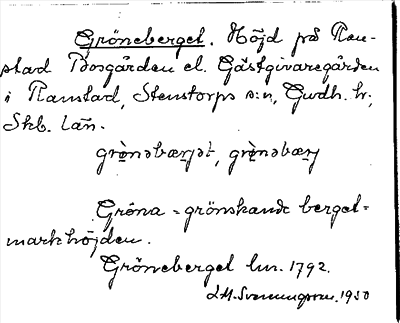 Gröneberget. Höjd på Ran-
stad Borgården el. Gästgivaregården
i Ranstad, Stenstorps s:n, Gudh. hr;
Skb. län.
grø̀nəbærjət, grø̀nəbærj
Gröna = grönskande berget =
markhöjden.
Gröneberget lm. 1792.
J.M. Svenungsson. 1930